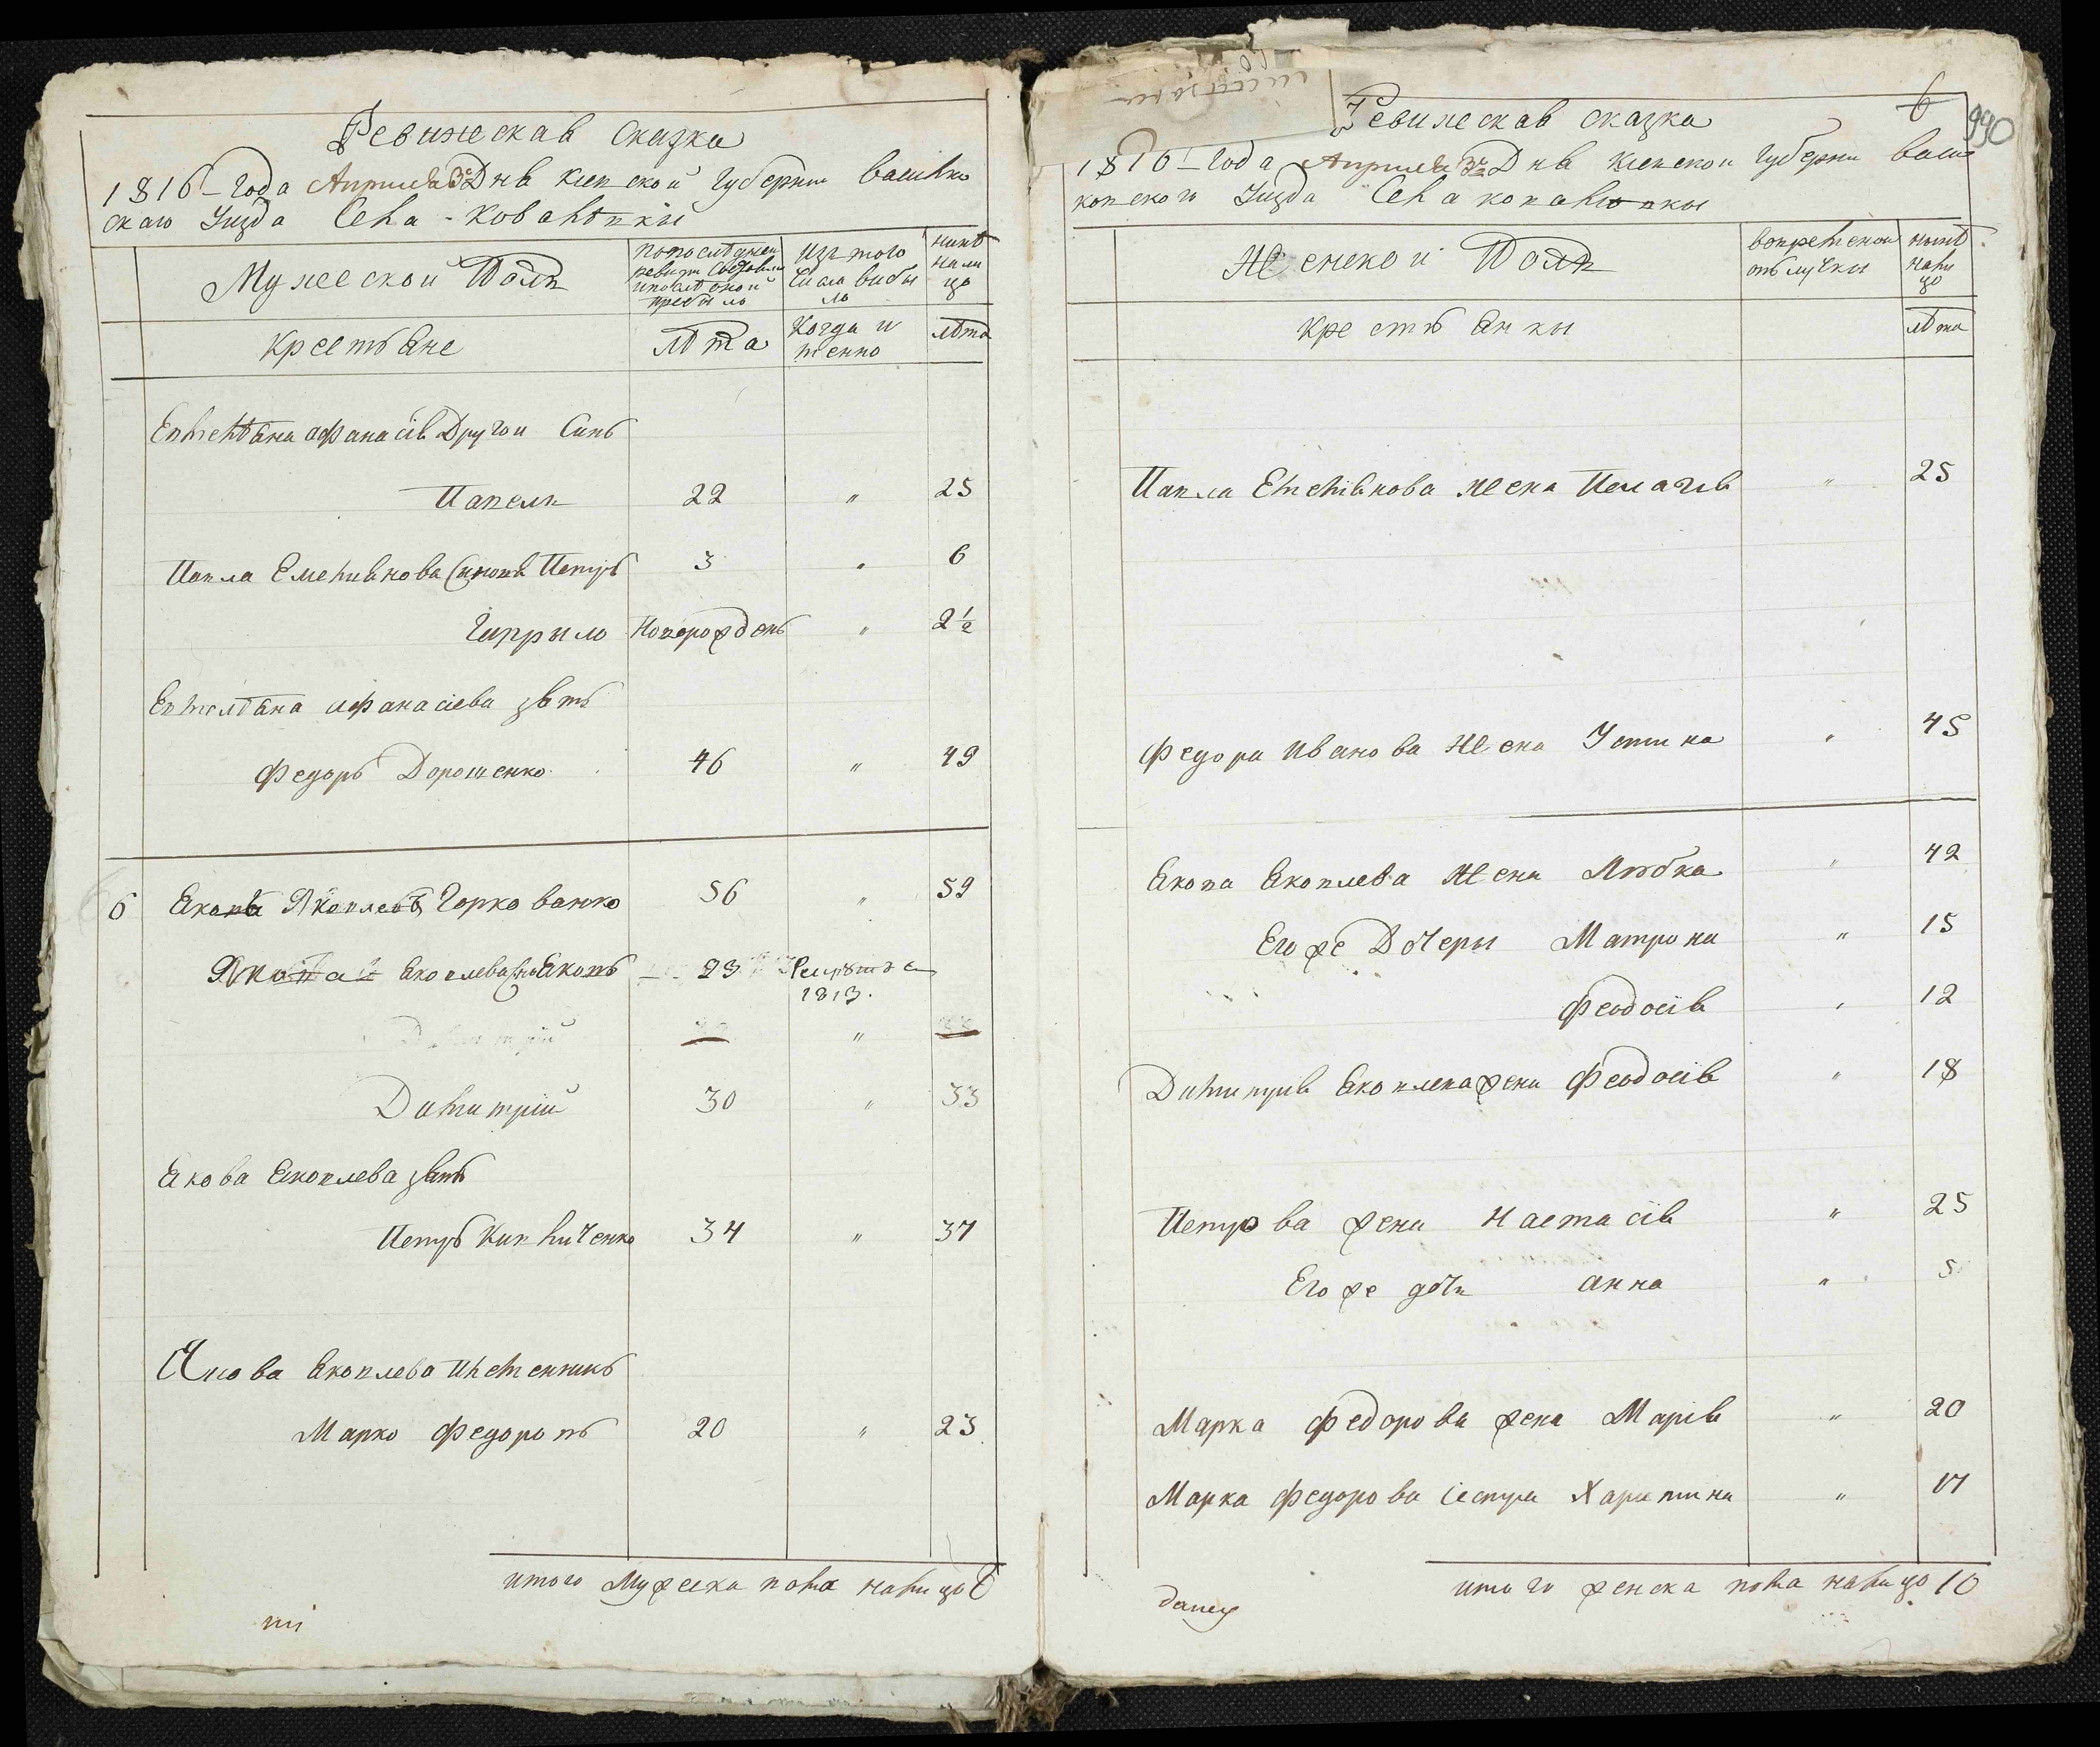 Ревижская Сказка
1816 года Априля 3 Дня Киевской губернии василко
скаго Уизда Села Ковалѣвки
Мужеской Полъ
По последней ревизи Состояло и после оной прибило
Изъ того Числа выбыло
нинѣ налицо
Крестьяне
лѣта
Когда именно
лѣта
Емелѣяна афанасія Другои Синъ
Павелъ 22 " 25
Павла Емелиянова Синовя Петръ 3 " 6
Гаврыло Новорожденъ " 2½
Емелѣяна афанасиева зять
Федоръ Дорошенко 46 " 49
6 Яковъ Яковлевъ Горкованко 56 " 59
Яковлева Синъ Яковъ 23 1813.
"
Димитрій 30 " 33
Якова Яковлева зять
Петръ Кивличенко 34 " 37
Якова Яковлева племенникъ
Марко Федоровъ 20 " 23
итого Мужеска пола налицо 8
6
990
Ревижская сказка
1816 года Априля 3 Дня Киевскои губерни васил
ковского Уизда Села ковалювкы
Женской Полъ
вовременои отлучкы
нынѣ налицо
Крестьянкы
лѣта
Павла Емелиянова жена Пелагія " 25
Федора Иванова жена Устина " 45
Якова Яковлева жена Любка " 42
Его же Дочеры Матрона " 15
Феодосія " 12
Димитрія Яковлева жена Феодосія " 18
Петрова жена Настасія " 25
Его же дочь анна " 5
Марка Федорова жена Марія " 20
Марка Федорова сестра Харитина " 17
итого женска пола налицо 10